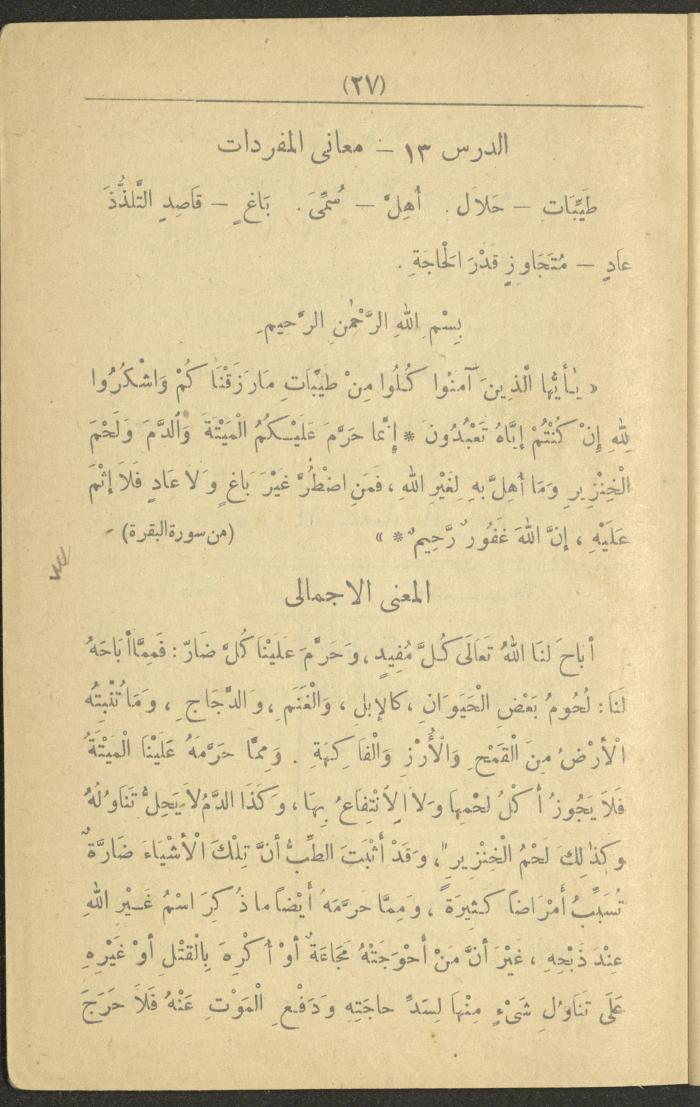 (٢٧)
الدرس ١٣ – معانى المفردات
طَيِّبَاتِ – حَلاَل . أُهِلَّ – سُمِّىَ . بَاغٍ – قَاصِدِ التَّلَذُّذَ
عَادٍ – مُتَجَاوِزٍ قَدْرَ الْحَاجَةِ .
بِسْمِ اللهِ الرَّحْمٰنِ الرَّحِيمِ
« يٰأَيُّهَا الَّذِينَ آمَنُوا كُلُوا مِنْ طَيِّبَاتِ مَارَزَقْنَا كُمْ وَاشْكُرُوا
لِلهِ إِنْ كُنْتُمْ إِيَّاهُ تَعْبُدُونَ * إِنَّمَا حَرَّمَ عَلَيْكُمُ الْمَيْتَةَ وَالدَّمَ وَلَحْمَ
الْخِنْزِيرِ وَمَا أُهِلَّ بِهِ لِغَيْرِ اللهِ ، فَمَنِ اضْطُرَّ غَيْرَ بَاغٍ وَلاَ عَادٍ فَلاَ إِثْمَ
عَلَيْهِ ، إِنَّ اللهَ غَفُورٌ رَّحِيمٌ * » (من سورة البقرة)
المعنى الاجمالى
أَباحَ لنَا اللهُ تَعَالَى كُلَّ مُفِيدٍ ، وَحَرَّمَ عَلَيْنَا كُلَّ ضَارّ : فَمِمَّا أَبَاحَهُ
لَنَا : لُحُومُ بَعْضِ الْحَيَوَانِ ، كالإِبل ، وَالْغَنَمِ ، وَالدَّجَاجِ ، وَمَا تُنْبِتُهُ
الْأَرْضُ مِنَ الْقَمْحِ وَالْأُرْزِ وَالْفَا كِهَةِ . وَمِمَّا حَرَّمَهُ عَلَيْنَا الْمَيْتَةُ
فَلاَ يَجُوزُ أَكْلُ لحْمِهَا وَلاَ الاِنْتِفَاعُ بِهَا ، وَكَذَا الدَّمُ لاَ يَحِلُّ تَنَاوُلُهُ
وَكَذٰلِكَ لَحْمُ الْخِنْزِيرِ ، وَقَدْ أَثْبَتَ الطِّبُّ أَنَّ تِلْكَ الْأَشْيَاءَ ضَارَّةٌ
تُسَبِّبُ أَمْرَاضًا كَثِيرَةً ، وَمِمَّا حَرَّمَهُ أَيْضًا ما ذُ كِرَ اسْمُ غَيْرِ اللهِ
عِنْدَ ذَبْحِهِ ، غَيْرَ أَنَّ مَنْ أَحْوَجَتْهُ مَجَاعَةٌ أَوْ أُ كْرِهَ بِالْقَتْلِ أَوْ غَيْرِهِ
عَلَى تَنَاوُلِ شَىْءٍ مِنْهَا لِسَدِّ حاجَتِهِ وَدَفْعِ الْمَوْتِ عَنْهُ فَلاَ حَرَجَ